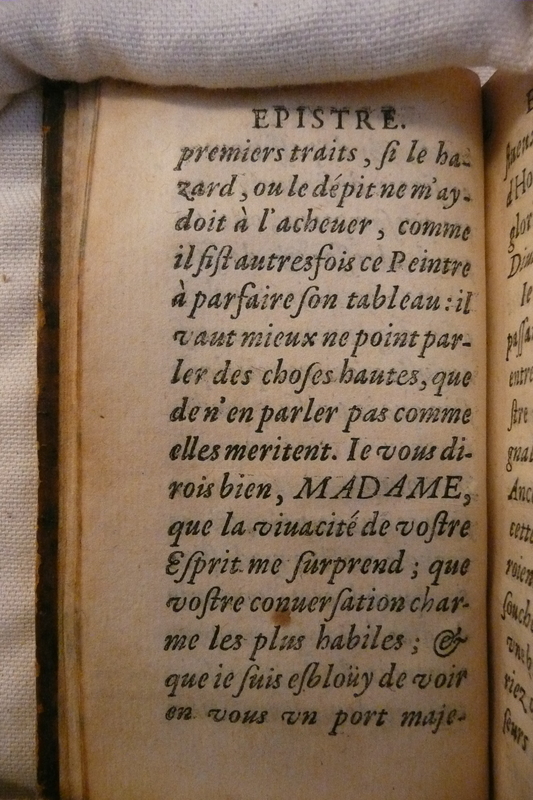 EPISTRE.
premiers traits, ſi le ha-
zard, ou le dépit ne m'ay-
doit à l'acheuer, comme
il fiſt autresfois ce Peintre
à parfaire ſon tableau: il
vaut mieux ne point par-
ler des choſes hautes, que
de n'en parler pas comme
elles meritent. Ie vous di-
rois bien, MADAME,
que la viuacité de voſtre
Eſprit me ſurprend; que
voſtre conuerſation char-
me les plus habiles; &
que ie ſuis eſbloüy de voir
en vous vn port maje-
glor
le
entre
ſtre
gnal
Anc
cette
roien
ſouch
vne
riez
ſeurs